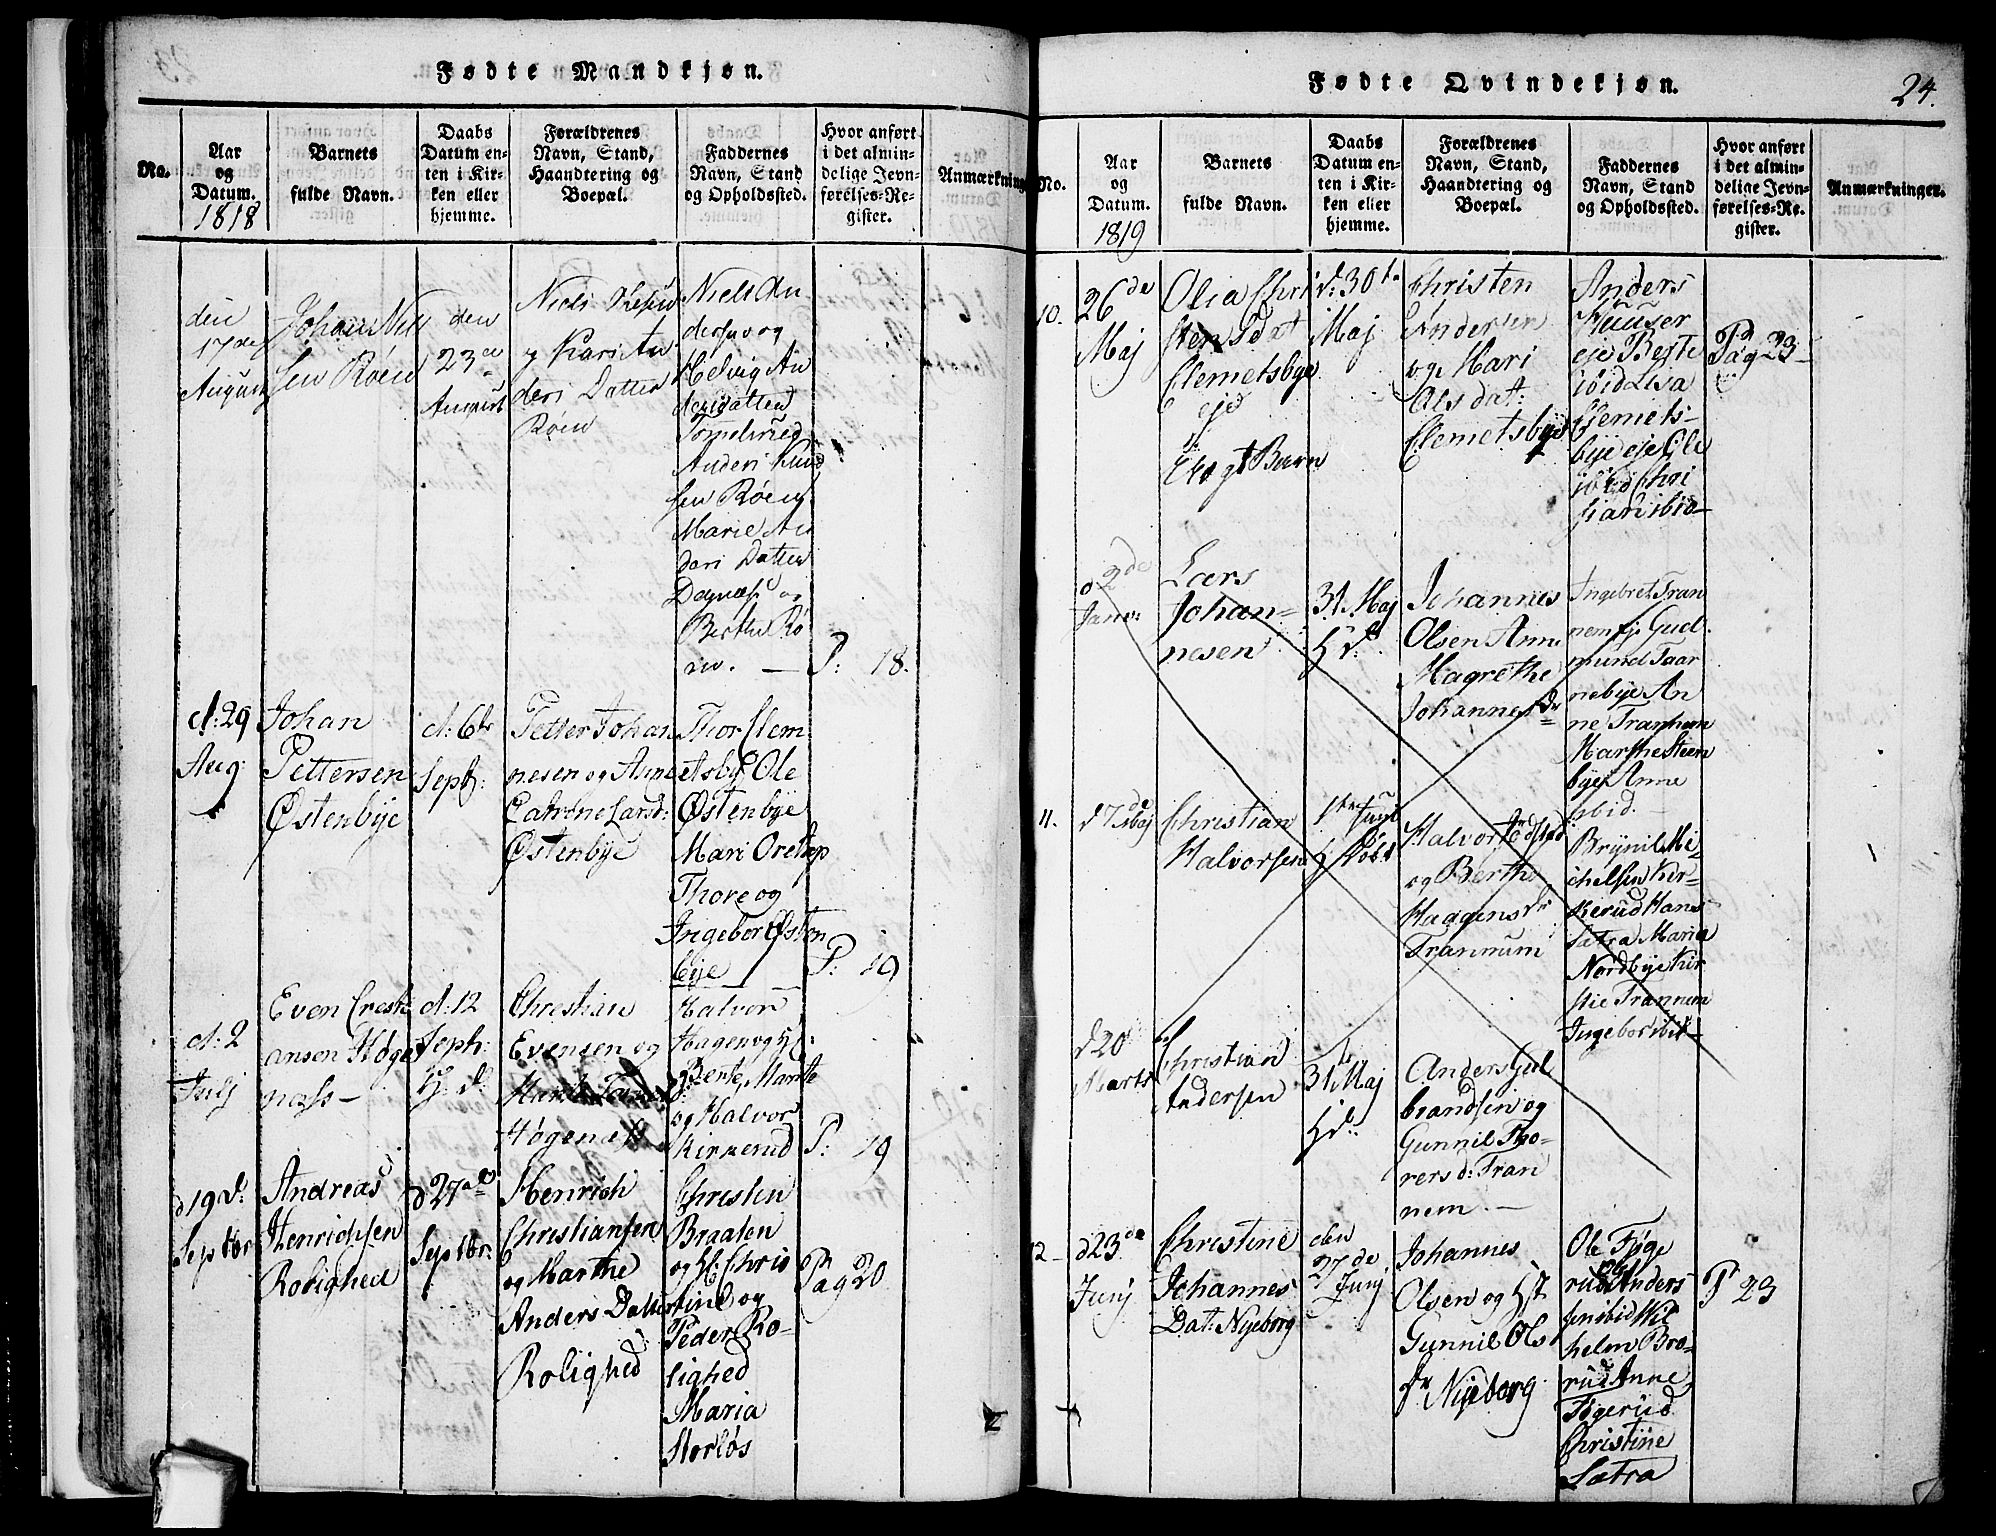 Fødte Mandkjøn.
No.
Aar
og
Datum.
1818
Barnets
fulde Navn.
Daabs
Datum en-
ten i Kir-
ken eller
hjemme.
Forældrenes
Navn, Stand,
Haandtering og
Boepæl.
Faddernes
Navn, Stand
og Opholdssted.
Hvor anført
i det almin-
delige Jevn-
førelses-Re-
gister.
Anmærkning
den
17de
August
Johan Niel
sen Røen
den
23de
August
Niels
og Kari An
ders Datter
Røen
Niels An
dersen og
Helvig An
dersdatter
Anders Knud
sen Røen
Marie An
ders Datter
og
Berthe Rø
en. —
P: 18.
d: 29
Aug:
Johan
Pettersen
Østenbye
d: 6te
Sept:
Petter Johan
nesen og Anne
Catrine Larsd:
Østenbye
Thor Clem
etsby Ole
Østenbye
Mari
Thore og
Ingebor Østen
bye
P: 19
d: 2
Julj
Even Cresti
ansen Høge
næss —
d: 12
Seph:
H: d:
Chrestian
Evensen og
Høgenæss
Halvor
Hagen og H:
Berte, Marte
og Halvor
Kirkerud
P: 19
d 19 d:
Septbr
Andreas
Henrichsen
Rolighed
d 27de
Septbr.
Henrich
Christiansen
og Marthe
Anders Datter
Rolighed
Christen
Braaten
og H: Chris
tine og
Peder Ro-
lighed
Maria
Storløs
Pag 20
Fødte Qvindekjøn.
24.
No.
Aar
og
Datum.
1819
Barnets
fulde Navn.
Daabs
Datum en-
ten i Kir-
ken eller
hjemme.
Forældrenes
Navn, Stand,
Haandtering og
Boepæl.
Faddernes
Navn, Stand
og Opholdssted.
Hvor anført
i det almin-
delige Jevn-
førelses-Re-
gister.
Anmærkninger.
10.
26de
Maj
Olea Chri
stensdat
Clemetsbye
eje
Uægt Barn
d: 30te
Maj
Christen
Andersen
og Mari
Olsdat:
Clemetsbye
Anders
eje Berte
ibid Lisa
Clemets-
bye eje Ole
ibid Chri
stian ibid—
Pag 23
d 2de
Janr:
Lars
Johan-
nesen
31 Maj
H d:
Johannes
Olsen Anne
Magrethe
Johannesdr
Ingebret Tran
nem Gud
mund Taar
nebye An
ne Trannem
Marthe Steen
bye Anne
ibid.
11.
d 7de Maj
Christian
Halvorsen
1ste Junj
H døbt
Halvor
og Berthe
Haagensdr
Trannum
Brynil Mi-
chelsen Kir-
kerud Hans
Sætra Maria
Nordbye Kir
stie Trannum
Ingebor ibid—
d 20
Marts
Christian
Andersen
31 Maj
H d:
Anders Gul
brandsen og
Gunnil Tho-
rersd: Tran
nem. —
12
d 23de
Junj
Christine
Johannes
Dat: Nyeborg
den
27de
Junj
Johannes
Olsen og Hst
Gunnil Ols
dr Nyeborg
Ole Føge
rud Anders
sen ibid Wil
helm Bra-
rud Anne
Føgerud
Christine
Sætra
P 23